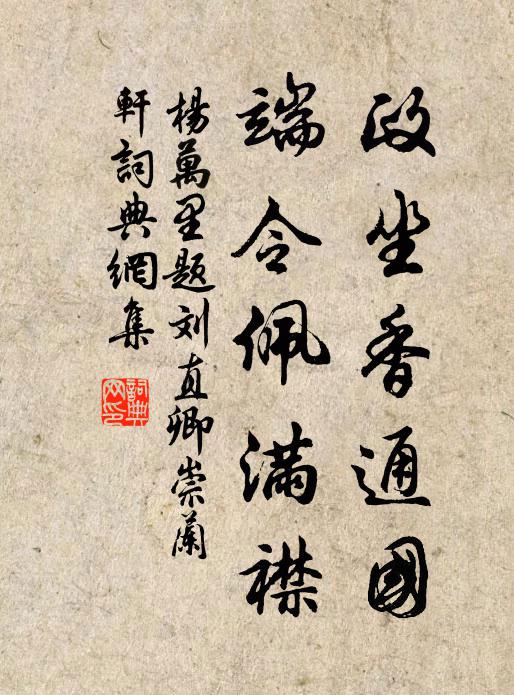 政坐香通國
端令佩满襟
楊萬里题刘直卿崇蘭
軒詞典網集
詞典
网印